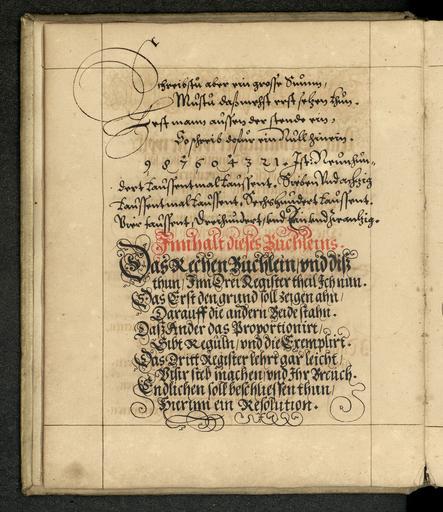 Schreibstu aber ein grosse Summ,
Mustu das mehst erst setzen thun.
Fest mann aussen der stende ein,
So schreib dafür ein Null hinein.
9 8 7 6 0 4 3 2 1. Ist: Neunhun-
dert taussent mal taussent. Sieben Vnd achzig
taussent mal taussent. Sechshundert taussent.
Vier taussent, Dreihundert, vnd Ein vnd zwantzig.
Innhalt dieses Büchleins.
Das Rechen Büchlein, vnd diß
thun, Inn Drei Register theil Ich nun.
Das Erst den grund soll zeigen ahn,
Darauff die andern Beide stahn.
Daß Ander das Proportionirt,
Gibt Reguln, vnd die Exemplirt.
Das Dritt Register lehrt gar leicht,
Visir steb machen, vnd Ihr Breuch.
Endlichen soll beschliessen thun,
Hierinn ein Resolution.